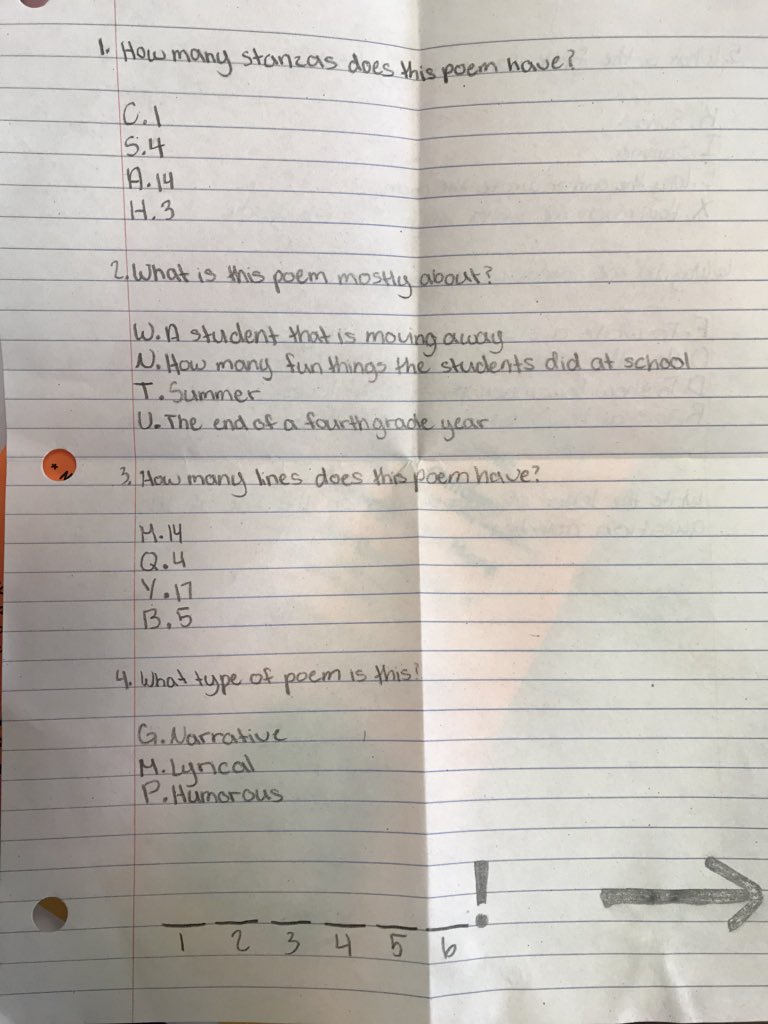 1. How many stanzas does this poem have?
C. 1
S. 4
A. 14
H. 3
2. What is this poem mostly about?
W. A student that is moving away
N. How many fun things the students did at school
T. Summer
U. The end of a fourth grade year
3. How many lines does this poem have?
M. 14
Q. 4
Y. 17
B. 5
4. What type of poem is this?
G. Narrative
M. Lyrical
P. Humorous
!
1 2 3 4 5 6